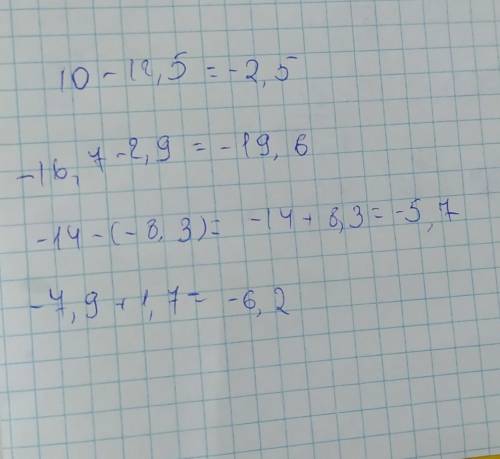 10 - 12,5 = -2,5
-16,7 - 2,9 = -19,6
-14 - (-8,3) = -14 + 8,3 = -5,7
-7,9 + 1,7 = -6,2